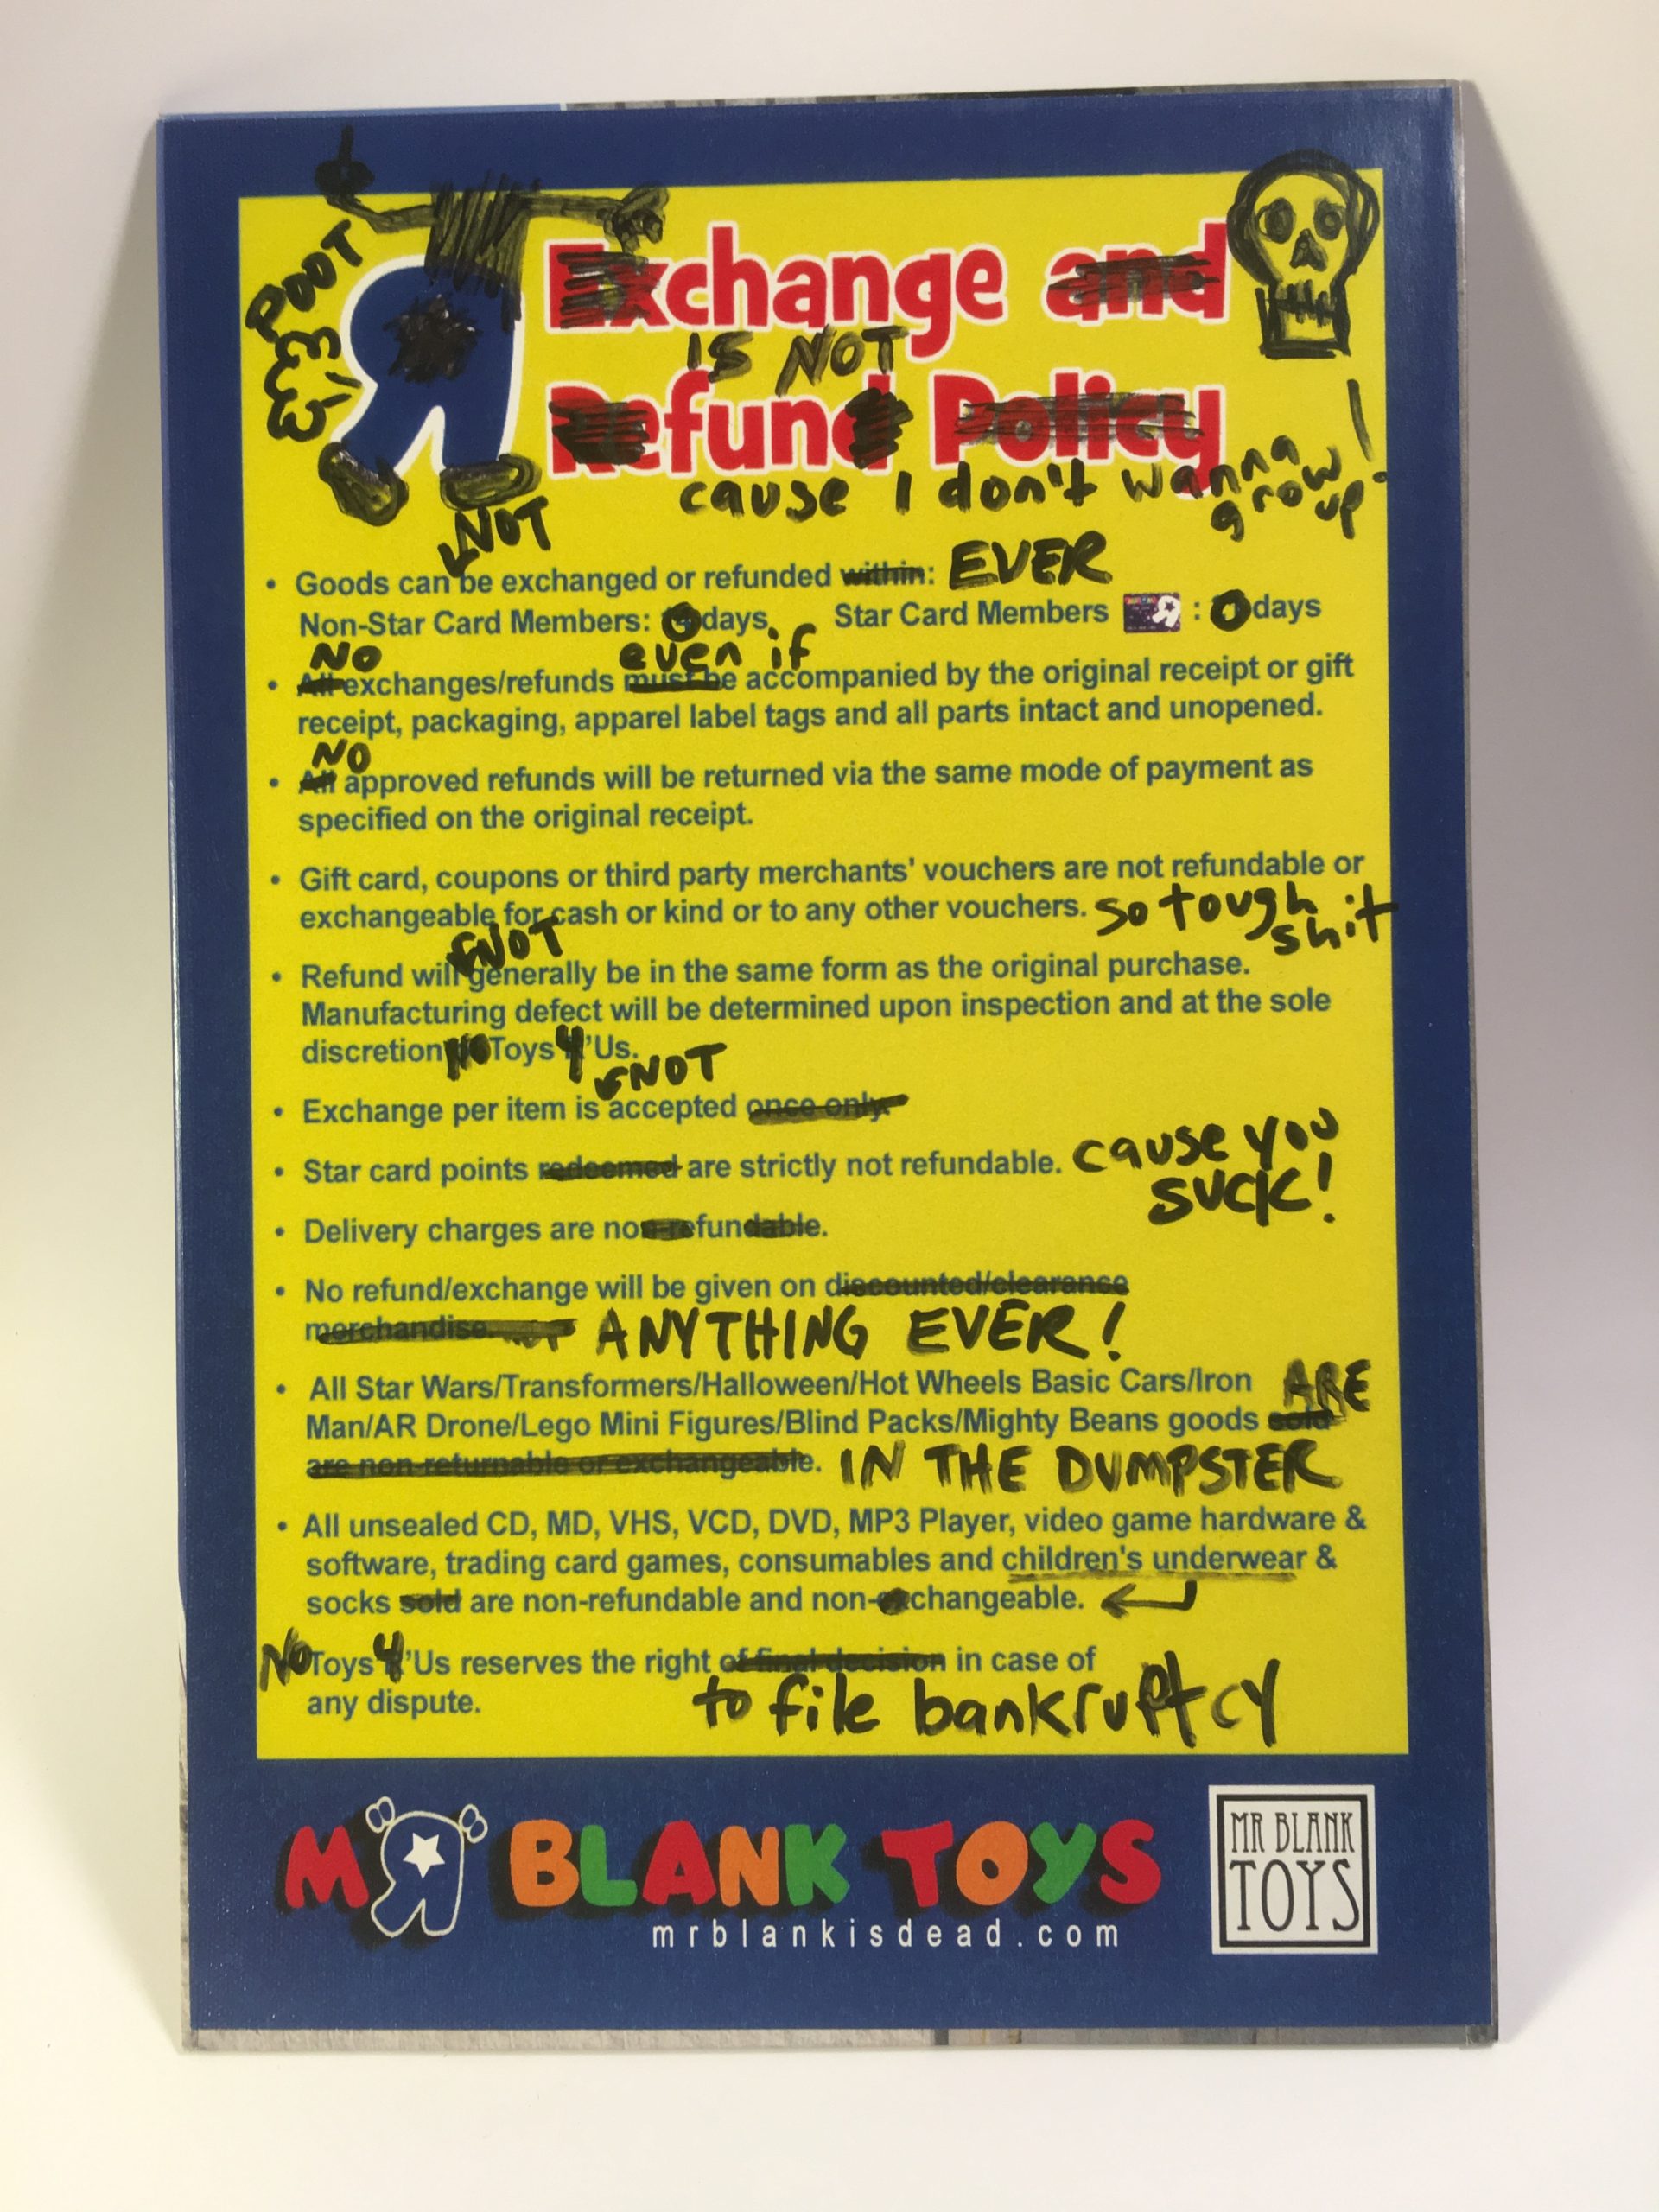 POOT
Exchange and
IS NOT
Refund Policy
cause I don't wanna
grow
up!
NOT
• Goods can be exchanged or refunded within: EVER
Non-Star Card Members: 0 days. Star Card Members : 0 days
NO even if
• All exchanges/refunds must be accompanied by the original receipt or gift
receipt, packaging, apparel label tags and all parts intact and unopened.
NO
• All approved refunds will be returned via the same mode of payment as
specified on the original receipt.
• Gift card, coupons or third party merchants' vouchers are not refundable or
exchangeable for cash or kind or to any other vouchers. so tough
shit
NOT
• Refund will generally be in the same form as the original purchase.
Manufacturing defect will be determined upon inspection and at the sole
discretion NO Toys 4 'Us.
NOT
• Exchange per item is accepted once only.
• Star card points redeemed are strictly not refundable. cause you
SUCK!
• Delivery charges are non-refundable.
• No refund/exchange will be given on discounted/clearance
merchandise. ANYTHING EVER!
• All Star Wars/Transformers/Halloween/Hot Wheels Basic Cars/Iron ARE
Man/AR Drone/Lego Mini Figures/Blind Packs/Mighty Beans goods sold
are non-returnable or exchangeable. IN THE DUMPSTER
• All unsealed CD, MD, VHS, VCD, DVD, MP3 Player, video game hardware &
software, trading card games, consumables and children's underwear &
socks sold are non-refundable and non-exchangeable.
NO Toys 4 'Us reserves the right of final decision in case of
any dispute. to file bankruptcy
MR BLANK TOYS
mrblankisdead.com
MR BLANK
TOYS